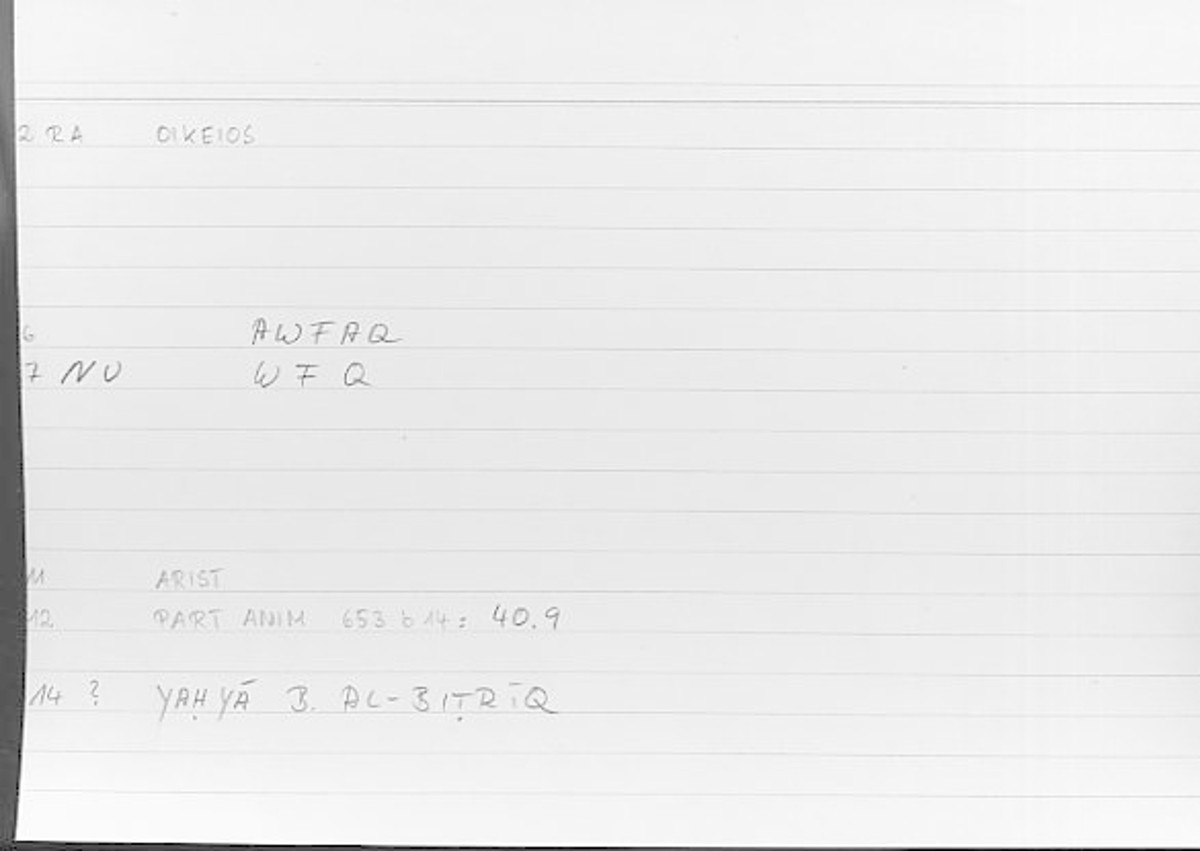 2 RA OIKEIOS
6 AWFAQ
7 NU W F Q
11 ARIST
12 PART ANIM 653 b 14: 40.9
14 ? YAḤYĀ B. AL-BIṬRĪQ